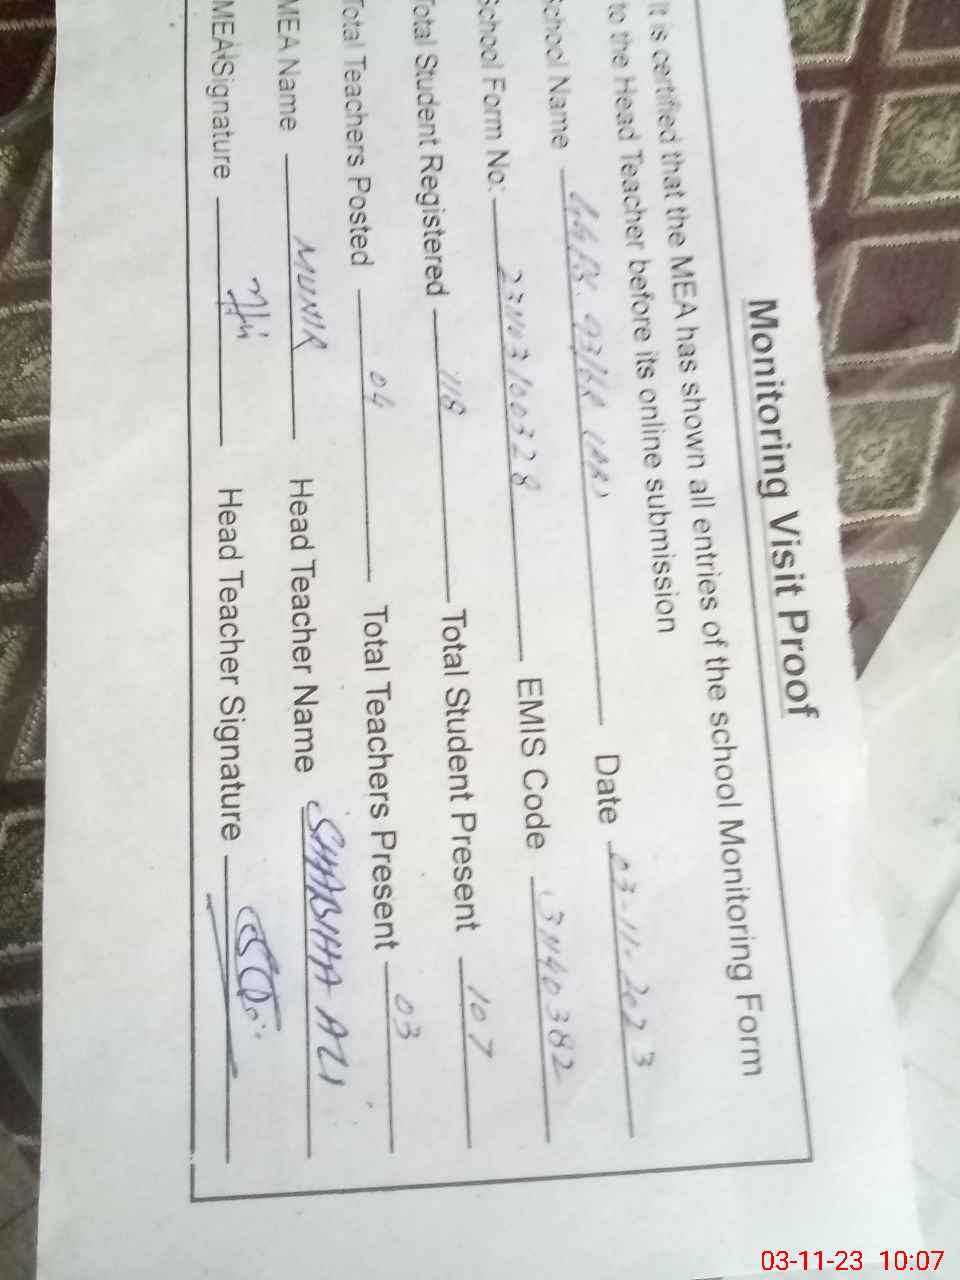 Monitoring Visit Proof
It is certified that the MEA has shown all entries of the school Monitoring Form
to the Head Teacher before its online submission
School Name 93/6R Date 03-11-2023
School Form No: EMIS Code
Total Student Registered 118 Total Student Present 107
Total Teachers Posted 04 Total Teachers Present 03
MEA Name MUNIR Head Teacher Name SHABIHA ALI
MEA Signature Head Teacher Signature
03-11-23 10:07